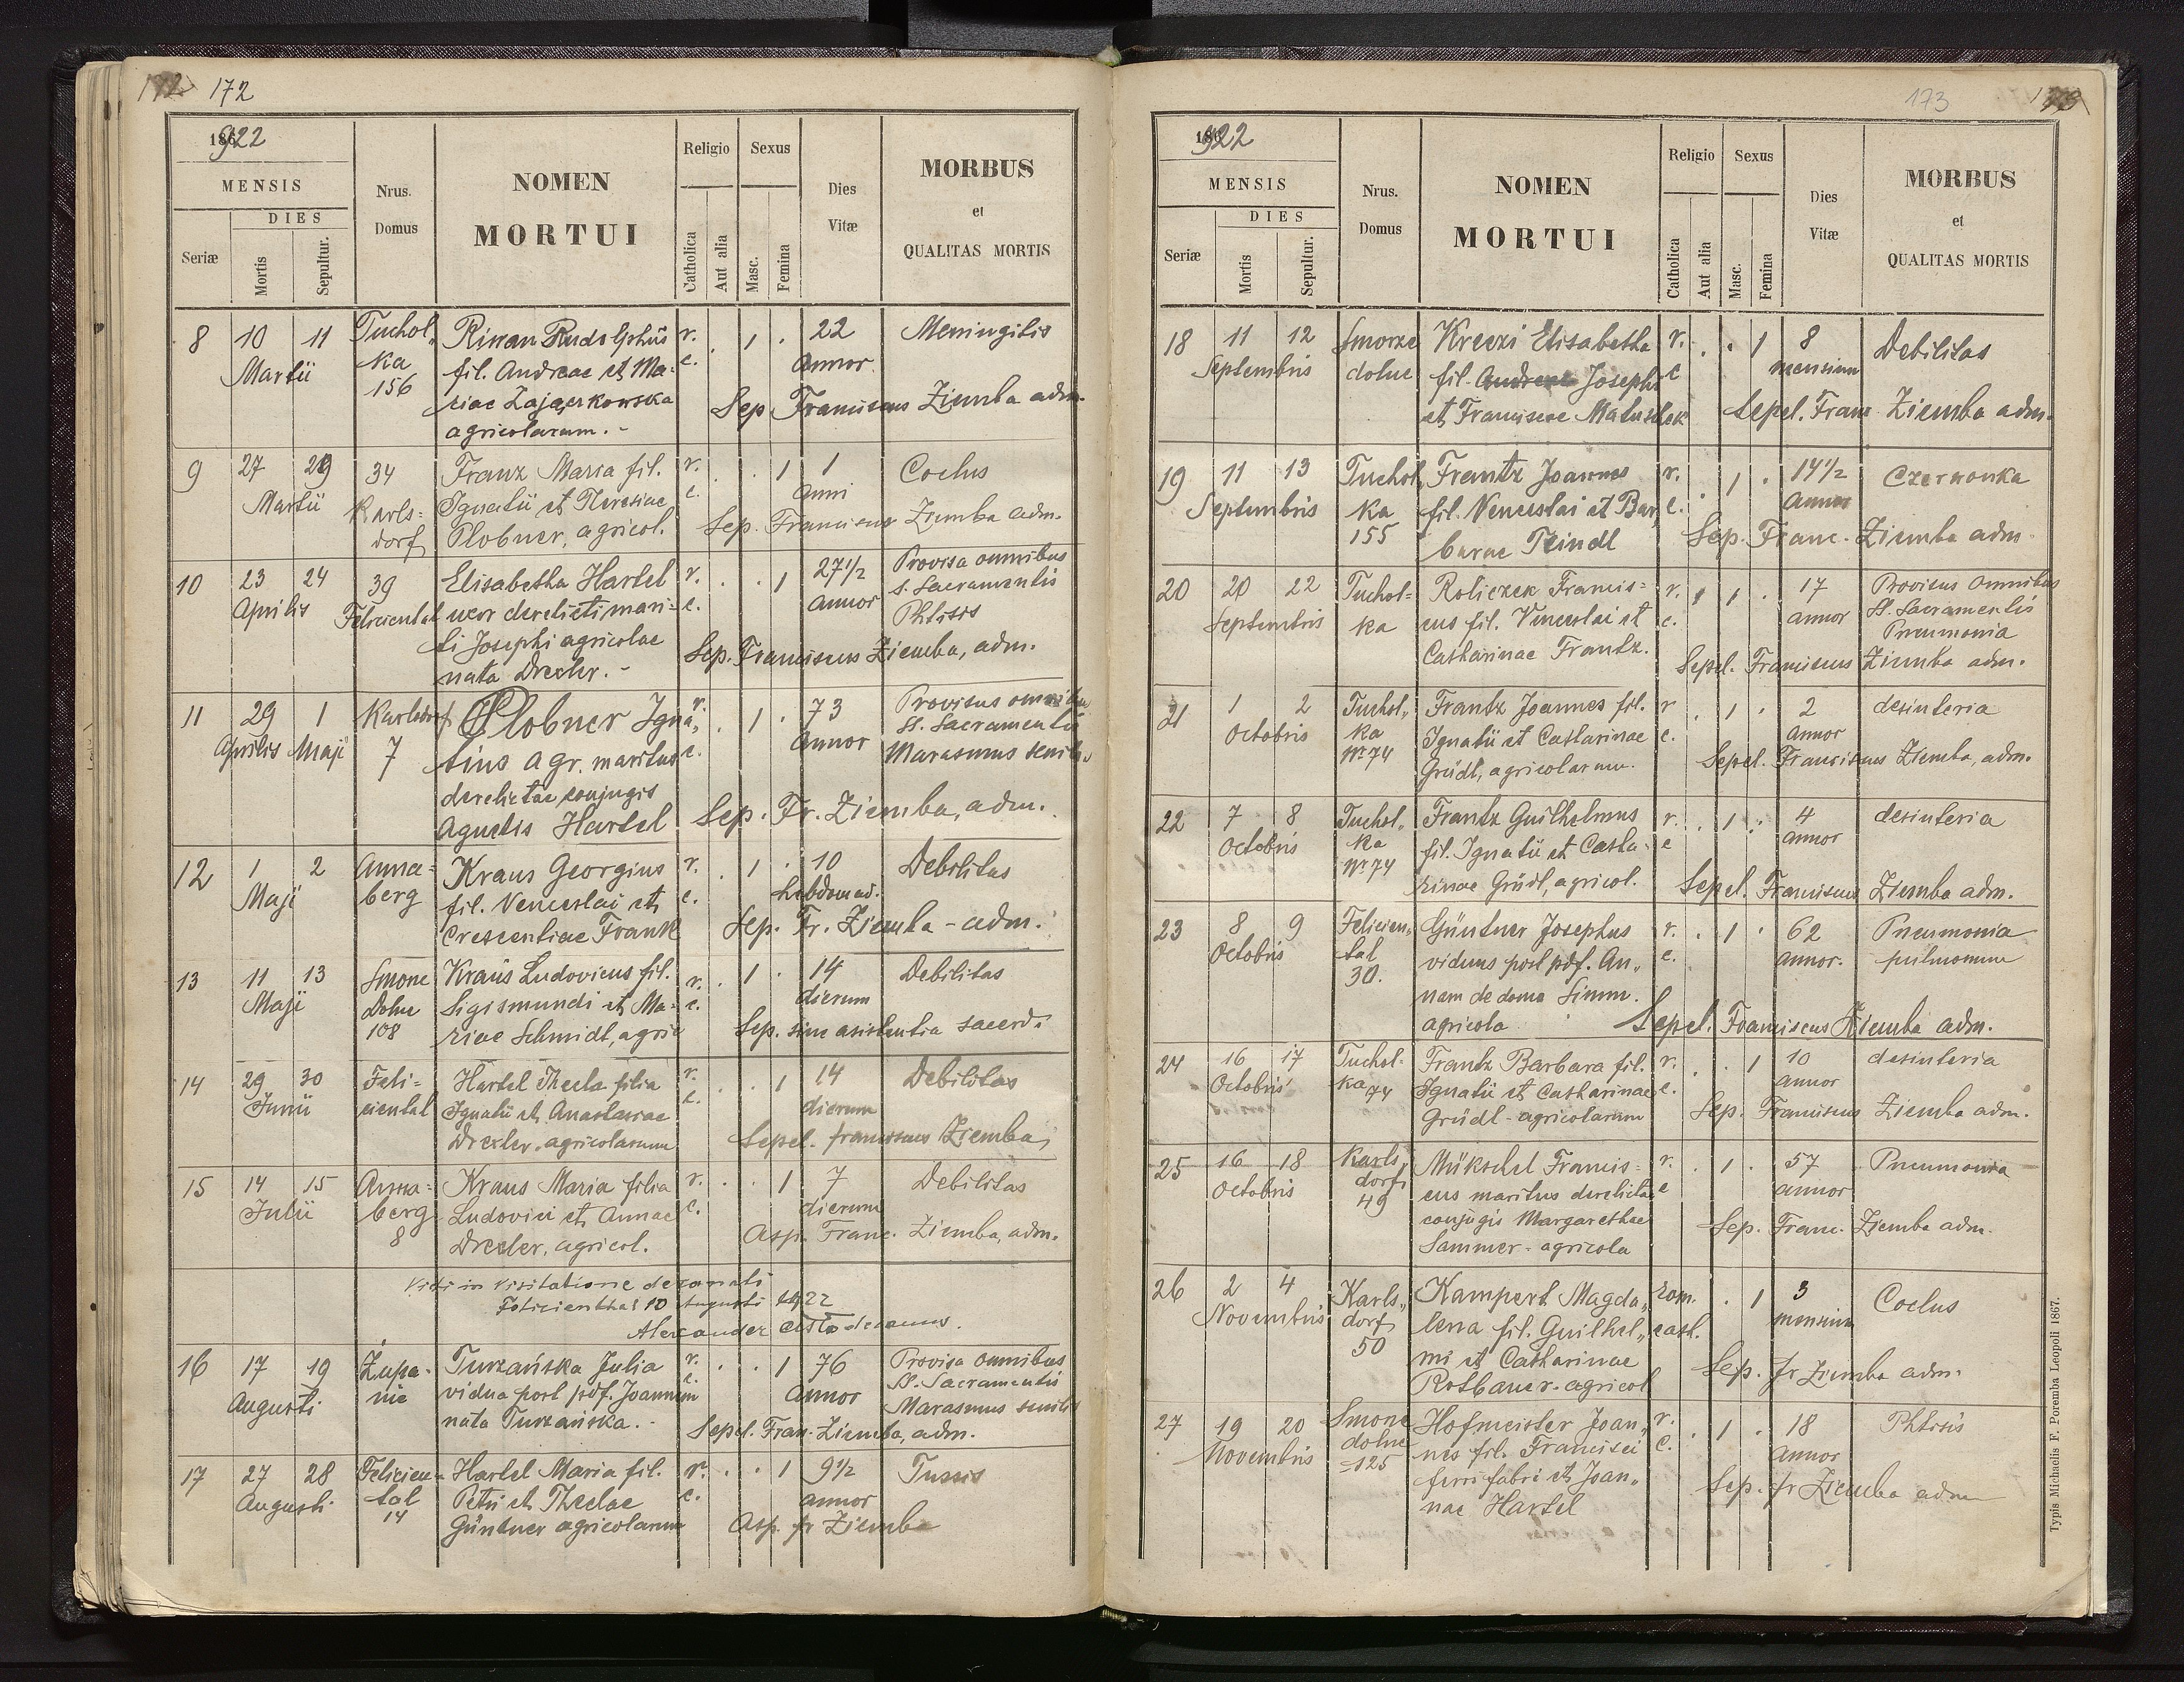 172
1922
MENSIS
DIES
Seriæ
Mortis
Sepultur.
Nrus.
Domus
NOMEN
MORTUI
Religio
Catholica
Aut alia
Sexus
Masc.
Femina
Dies
Vitæ
MORBUS
et
QUALITAS MORTIS
8 10 11 Tuchol„ Rinan Rudolphus r. . 1 . 22 Meningitis
Martii ka fil. Andreae et Ma- c. Annor.
156 riae Zajączkowska Sep Franciscus Ziemba adm.
agricolarum.-
9 27 29 34 Franz Maria fil. r. . . 1 1 Coclus
Martii Karls= Ignatii et Theresiae c. Anni
dorf Plobner, agricol. Sep. Franciscus Ziemba adm.
10 23 24 39 Elisabetha Hartel r. . . 1 27½ Provisa omnibus
Aprilis Felicientat uxor derelicti mari- c. Annor s. Sacramentis
ti Josephi agricolae Phtisis
nata Drexler.- Sep. Franciscus Ziemba, adm.
11 29 1 Karlsdorf Plobner Igna„ r. . 1 . 73 Provisus omnibus
Aprilis Maji 7 tius agr. maritus c. Annor SS. Sacramentis
derelictae conjugis Marasmus senilis
Agnetis Hartel Sep. Fr. Ziemba, adm.
12 1 2 Anna= Kraus Georgius r. . 1 . 10 Debilitas
Maji berg fil. Venceslai et c. hebdomad.
Crescentiae Frank Sep. Fr. Ziemba - adm.
13 11 13 Smorze Kraus Ludovicus fil. r. . 1 . 14 Debilitas
Maji Dolne Sigismundi et Ma- c. dierum
108 riae Schmidt, agric Sep. sine asistentia sacerd.
14 29 30 Feli= Hartel Thecla filia r. . . 1 14 Debilitas
Junii cientat Ignatii et Anastasiae c. dierum
Drexler, agricolarum Sepel. franciscus Ziemba
15 14 15 Anna= Kraus Maria filia r. . . 1 7 Debilitas
Julii berg Ludovici et Annae c. dierum
8 Drexler, agricol. Asp. Franc. Ziemba, adm.
Vidi in visitatione decanali
Felicienthal 10 Augusti 1922
Alexander decanus.
16 17 19 Żupa- Turzańska Julia r. . . 1 76 Provisa omnibus
Augusti nie vidua post pdf. Joannem c. Annor SS. Sacramentis
nata Turzańska.- Marasmus senilis
Sepel. Fran. Ziemba, adm.
17 27 28 Felicien- Hartel Maria fil. r. . . 1 9½ Tussis
Augusti tal Petri et Theclae c. annor
14 Güntner agricolarum Asp. fr Ziemba
173
1922
MENSIS
DIES
Seriæ
Mortis
Sepultur.
Nrus.
Domus
NOMEN
MORTUI
Religio
Catholica
Aut alia
Sexus
Masc.
Femina
Dies
Vitæ
MORBUS
et
QUALITAS MORTIS
18 11 12 Smorze Kreczi Elisabetha r. . . 1 8 Debilitas
Septembris dolne fil. Andreae Josephi c mensium
et Franciscae Matuschek Sepel. Franc Ziemba adm.
19 11 13 Tuchol„ Frantz Joannes r. . 1 . 14½ Czerwonka
Septembris ka fil. Venceslai et Bar„ c. Annor
155 barae Teindl Sep. Franc. Ziemba adm.
20 20 22 Tuchol= Roliczek Francis= r. . 1 . 17 Provisus omnibus
Septembris ka cus fil. Venceslai et c. annor SS. Sacramentis
Catharinae Frantz. Pneumonia
Sepel. Franciscus Ziemba adm.
21 1 2 Tuchol„ Frantz Joannes fil. r . 1 . 2 desinteria
Octobris ka Ignatii et Catharinae c. annor
Nr 74 Grüdl, agricolarum. Sepel. Franciscus Ziemba, adm.
22 7 8 Tuchol„ Frantz Guilhelmus r. . 1 . 4 desinteria
Octobris ka fil. Ignatii et Catha- c annor
Nr 74 rinae Grüdl, agricol. Sepel. Franciscus Ziemba adm.
23 8 9 Felicien„ Güntner Josephus r. . 1 . 62 Pneumonia
Octobris tal viduus post pdf. An„ c. annor. pulmonum
30. nam de domo Simm.
agricola Sepel. Franciscus Ziemba adm.
24 16 17 Tuchol- Frantz Barbara fil. r. . . 1 10 desinteria
Octobris ka 74 Ignatii et Catharinae c. annor
Grüdl - agricolarum Sep. Franciscus Ziemba adm.
25 16 18 Karls„ Mükschel Francis= r. . 1 . 57 Pneumonia
Octobris dorf cus maritus derelictae c annor
49 conjugis Margarethae
Sammer - agricola Sep. Franc. Ziemba adm.
26 2 4 Karls„ Kampert Magda„ rom. . 1 3 Coclus
Novembris dorf lena fil. Guilhel„ cath. mensium
50 mi et Catharinae
Rotbauer - agricol Sep. fr Ziemba adm.
27 19 20 Smorze Hofmeister Joan„ r. . 1 . 18 Phtisis
Novembris dolne nes fil. Francisci c. annor
125 ferri fabri et Joan„
nae Hartel Sep. fr Ziemba adm
Typis Michaelis F. Poremba Leopoli 1867.